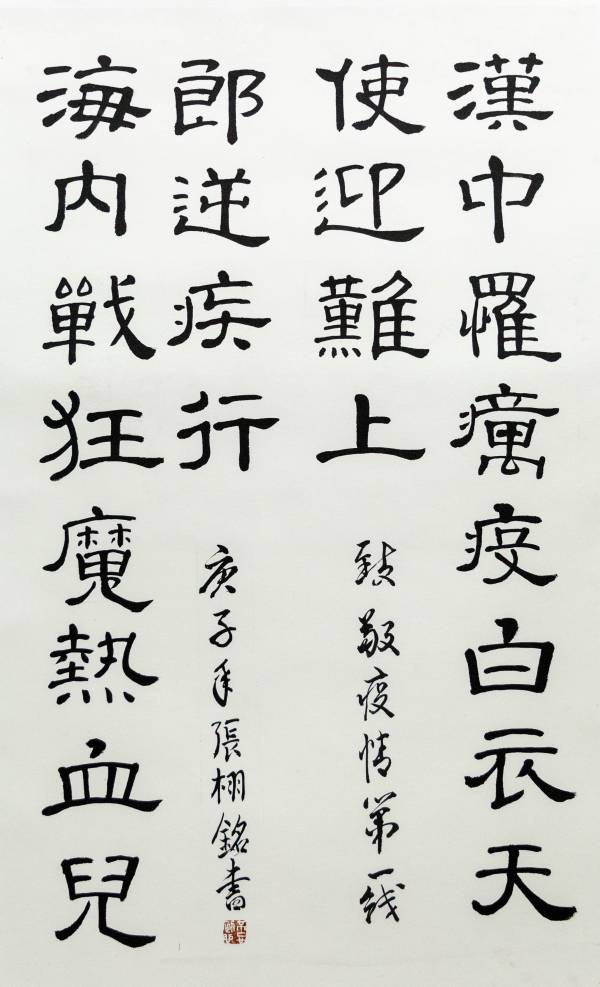 漢中罹癘疫白衣天
使迎難上
致敬疫情第一线
海内戰狂魔熱血兒
郎逆疾行
庚子年張栩銘書